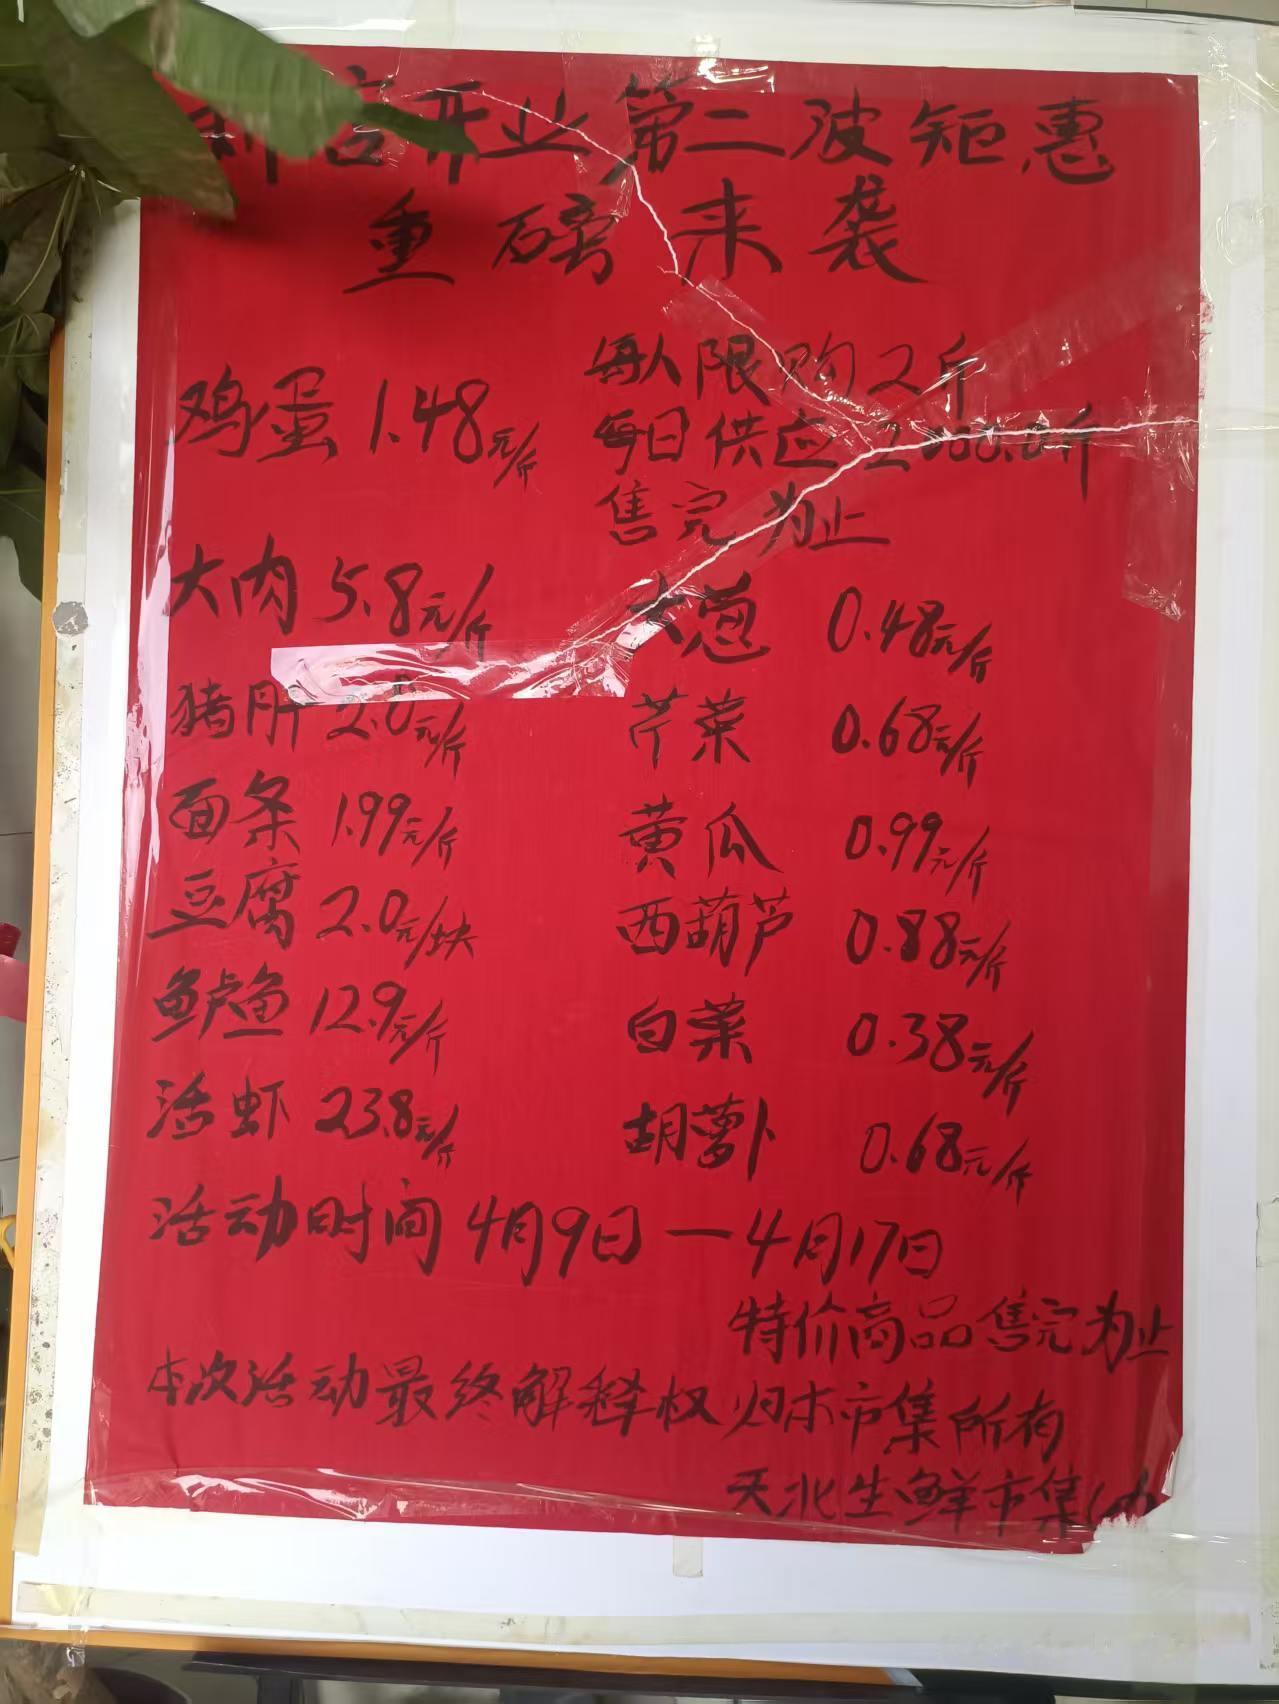 新店开业第二波钜惠
重磅来袭
鸡蛋 1.48元/斤
每人限购2斤
每日供应2000.0斤
售完为止
大肉 5.8元/斤
大葱 0.48元/斤
猪肝 2.0元/斤
芹菜 0.68元/斤
面条 1.99元/斤
黄瓜 0.99元/斤
豆腐 2.0元/块
西葫芦 0.88元/斤
鲈鱼 12.9元/斤
白菜 0.38元/斤
活虾 23.8元/斤
胡萝卜 0.68元/斤
活动时间 4月9日—4月17日
特价商品售完为止
本次活动最终解释权归本市集所有
天北生鲜市集